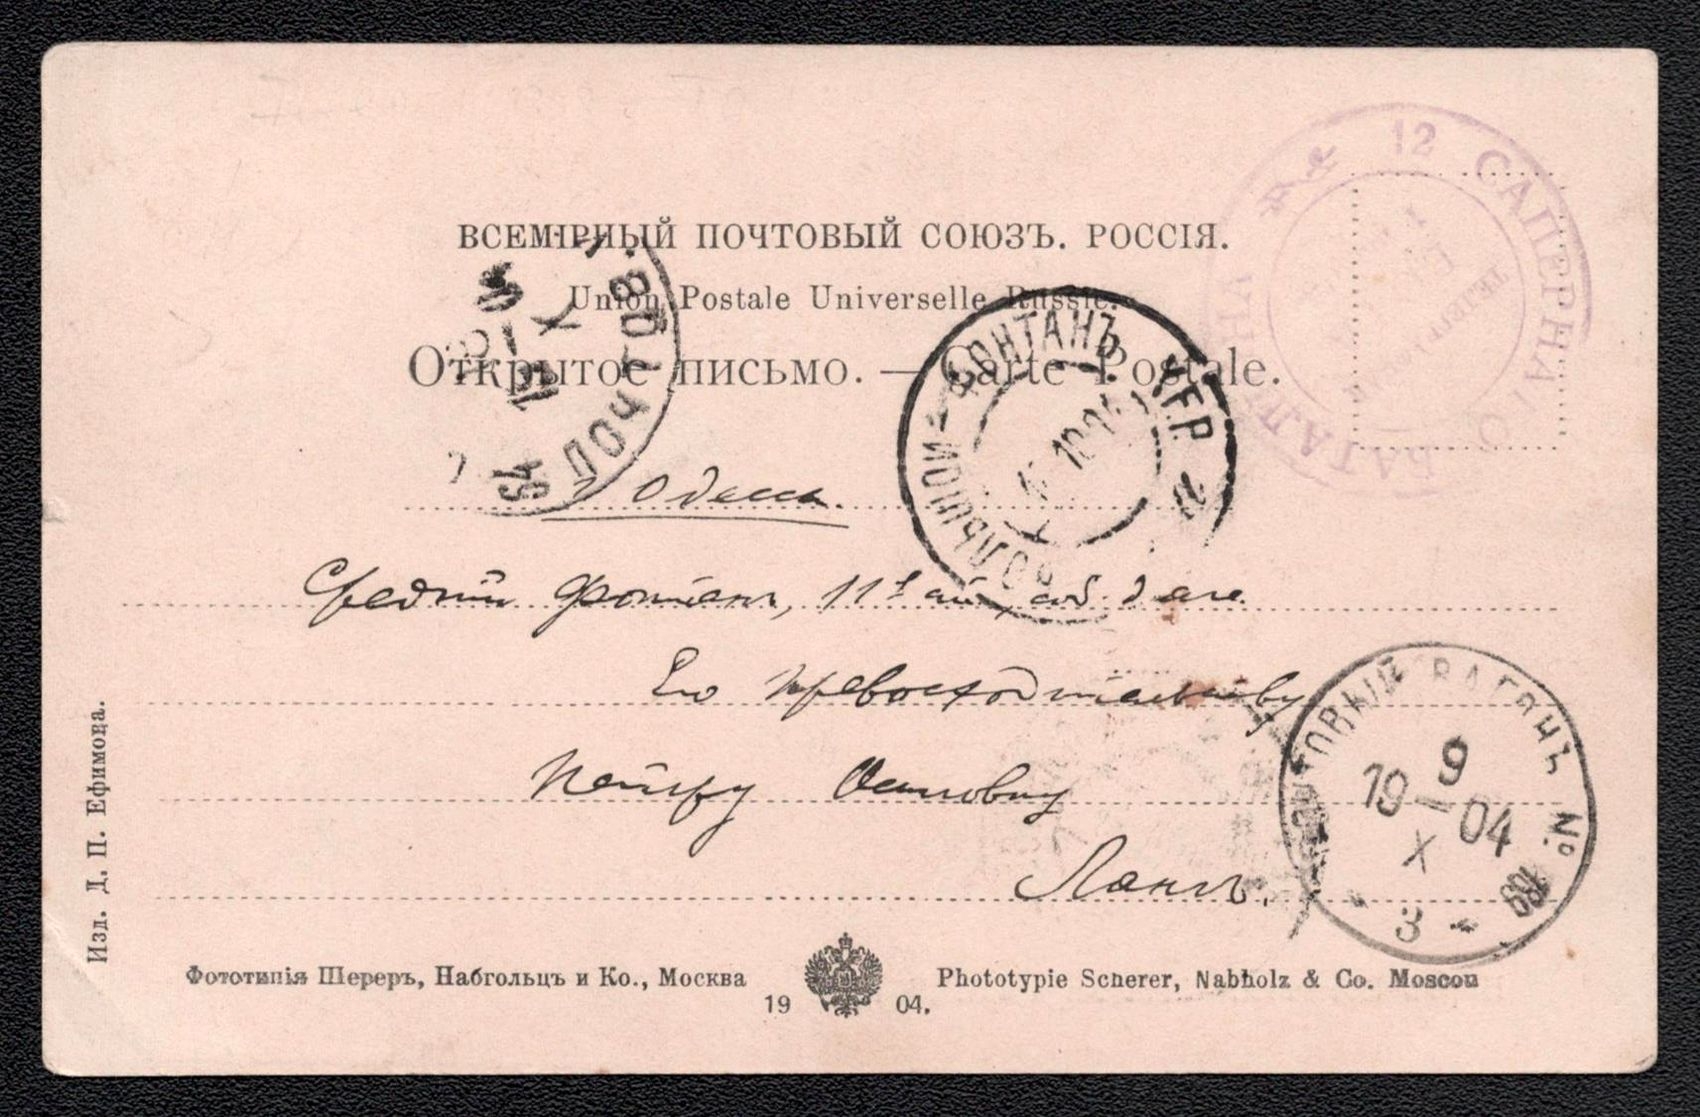 ВСЕМІРНЫЙ ПОЧТОВЫЙ СОЮЗЪ. РОССІЯ.
Union Postale Universelle Russie.
Открытое письмо. — Carte Postale.
12 САПЕРНАГО БАТАЛ
ПОЧТОВ
54
БОЛЬШОЙ-ФОНТАНЪ ХЕР.
Одесса.
Средній Фонтанъ, 11 ст, соб. дача
Его Превосходительству
Петру Осиповичу
Лангъ.
ПОЧТОВЫЙ ВАГОНЪ №
9
19 — 04
X
3
Изд. Д. П. Ефимова.
Фототипія Шереръ, Набгольцъ и Ко., Москва
19 04.
Phototypie Scherer, Nabholz & Co. Moscou